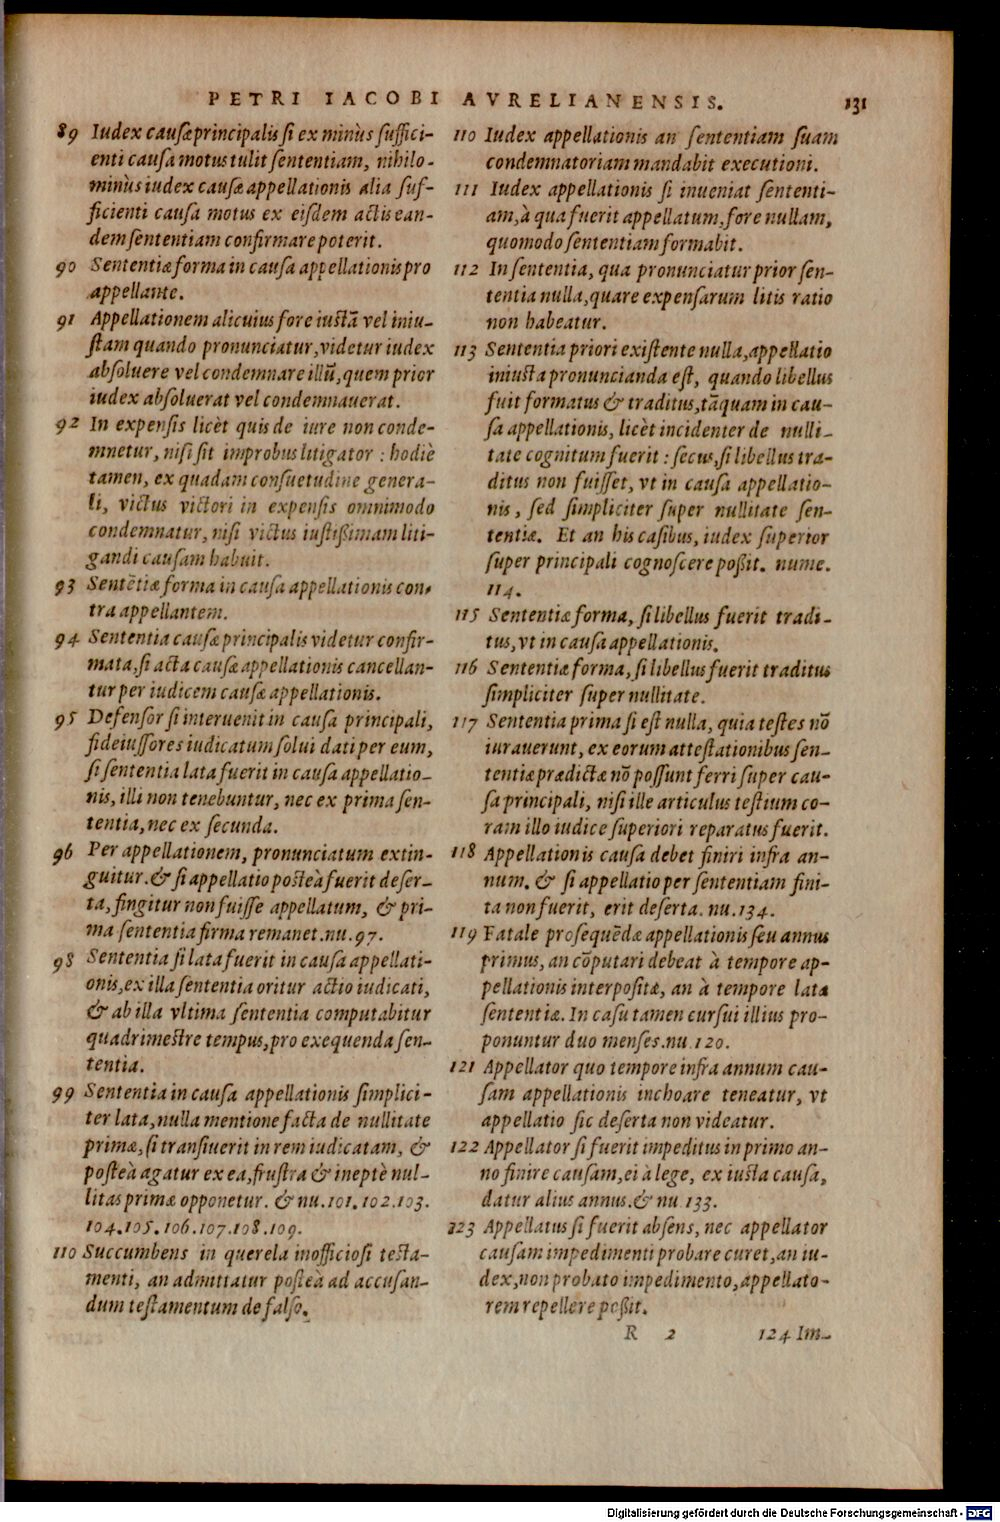 PETRI IACOBI AVRELIANENSIS. 131
89 Iudex causæ principalis si ex minùs suffici-
enti causa motus tulit sententiam, nihilo-
minùs iudex causæ appellationis alia suf-
ficienti causa motus ex eisdem actis ean-
dem sententiam confirmare poterit.
90 Sententiæ forma in causa appellationis pro
appellante.
91 Appellationem alicuius fore iustā vel iniu-
stam quando pronunciatur, videtur iudex
absoluere vel condemnare illū, quem prior
iudex absoluerat vel condemnauerat.
92 In expensis licèt quis de iure non conde-
mnetur, nisi sit improbus litigator : hodiè
tamen, ex quadam consuetudine genera-
li, victus victori in expensis omnimodo
condemnatur, nisi victus iustißimam liti-
gandi causam habuit.
93 Sentētiæ forma in causa appellationis con-
tra appellantem.
94 Sententia causæ principalis videtur confir-
mata, si acta causæ appellationis cancellan-
tur per iudicem causæ appellationis.
95 Defensor si interuenit in causa principali,
fideiussores iudicatum solui dati per eum,
si sententia lata fuerit in causa appellatio-
nis, illi non tenebuntur, nec ex prima sen-
tentia, nec ex secunda.
96 Per appellationem, pronunciatum extin-
guitur. & si appellatio posteà fuerit deser-
ta, fingitur non fuisse appellatum, & pri-
ma sententia firma remanet. nu. 97.
98 Sententia si lata fuerit in causa appellati-
onis, ex illa sententia oritur actio iudicati,
& ab illa vltima sententia computabitur
quadrimestre tempus, pro exequenda sen-
tentia.
99 Sententia in causa appellationis simplici-
ter lata, nulla mentione facta de nullitate
primæ, si transiuerit in rem iudicatam, &
posteà agatur ex ea, frustra & ineptè nul-
litas primæ opponetur. & nu. 101. 102. 103.
104. 105. 106. 107. 108. 109.
110 Succumbens in querela inofficiosi testa-
menti, an admittatur posteà ad accusan-
dum testamentum de falso.
110 Iudex appellationis an sententiam suam
condemnatoriam mandabit executioni.
111 Iudex appellationis si inueniat sententi-
am, à qua fuerit appellatum, fore nullam,
quomodo sententiam formabit.
112 In sententia, qua pronunciatur prior sen-
tentia nulla, quare expensarum litis ratio
non habeatur.
113 Sententia priori existente nulla, appellatio
iniusta pronuncianda est, quando libellus
fuit formatus & traditus, tāquam in cau-
sa appellationis, licèt incidenter de nulli-
tate cognitum fuerit : secus, si libellus tra-
ditus non fuisset, vt in causa appellatio-
nis, sed simpliciter super nullitate sen-
tentiæ. Et an his casibus, iudex superior
super principali cognoscere poßit. nume.
114.
115 Sententiæ forma, si libellus fuerit tradi-
tus, vt in causa appellationis.
116 Sententiæ forma, si libellus fuerit traditus
simpliciter super nullitate.
117 Sententia prima si est nulla, quia testes nō
iurauerunt, ex eorum attestationibus sen-
tentiæ prædictæ nō possunt ferri super cau-
sa principali, nisi ille articulus testium co-
ram illo iudice superiori reparatus fuerit.
118 Appellationis causa debet finiri infra an-
num. & si appellatio per sententiam fini-
ta non fuerit, erit deserta. nu. 134.
119 Fatale prosequēdæ appellationis seu annus
primus, an cōputari debeat à tempore ap-
pellationis interpositæ, an à tempore latæ
sententiæ. In casu tamen cursui illius pro-
ponuntur duo menses. nu. 120.
121 Appellator quo tempore infra annum cau-
sam appellationis inchoare teneatur, vt
appellatio sic deserta non videatur.
122 Appellator si fuerit impeditus in primo an-
no finire causam, ei à lege, ex iusta causa,
datur alius annus. & nu 133.
123 Appellatus si fuerit absens, nec appellator
causam impedimenti probare curet, an iu-
dex, non probato impedimento, appellato-
rem repellere poßit.
R 2 124 Im-
Digitalisierung gefördert durch die Deutsche Forschungsgemeinschaft - DFG